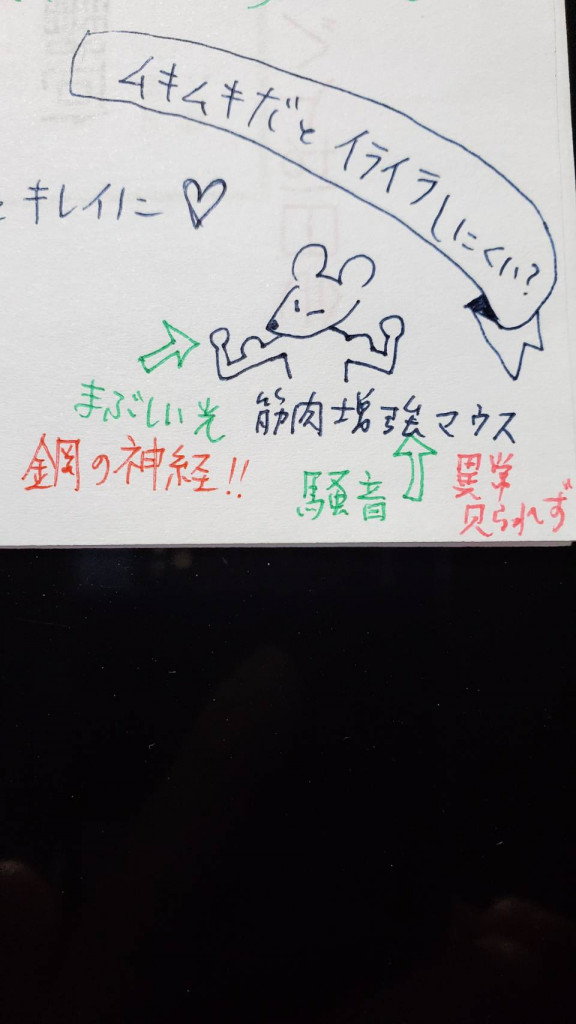 ムキムキだと イライラしにくい?
と キレイに ♡
まぶしい光
筋肉増強マウス
鋼の神経!!
騒音
異常
見られず